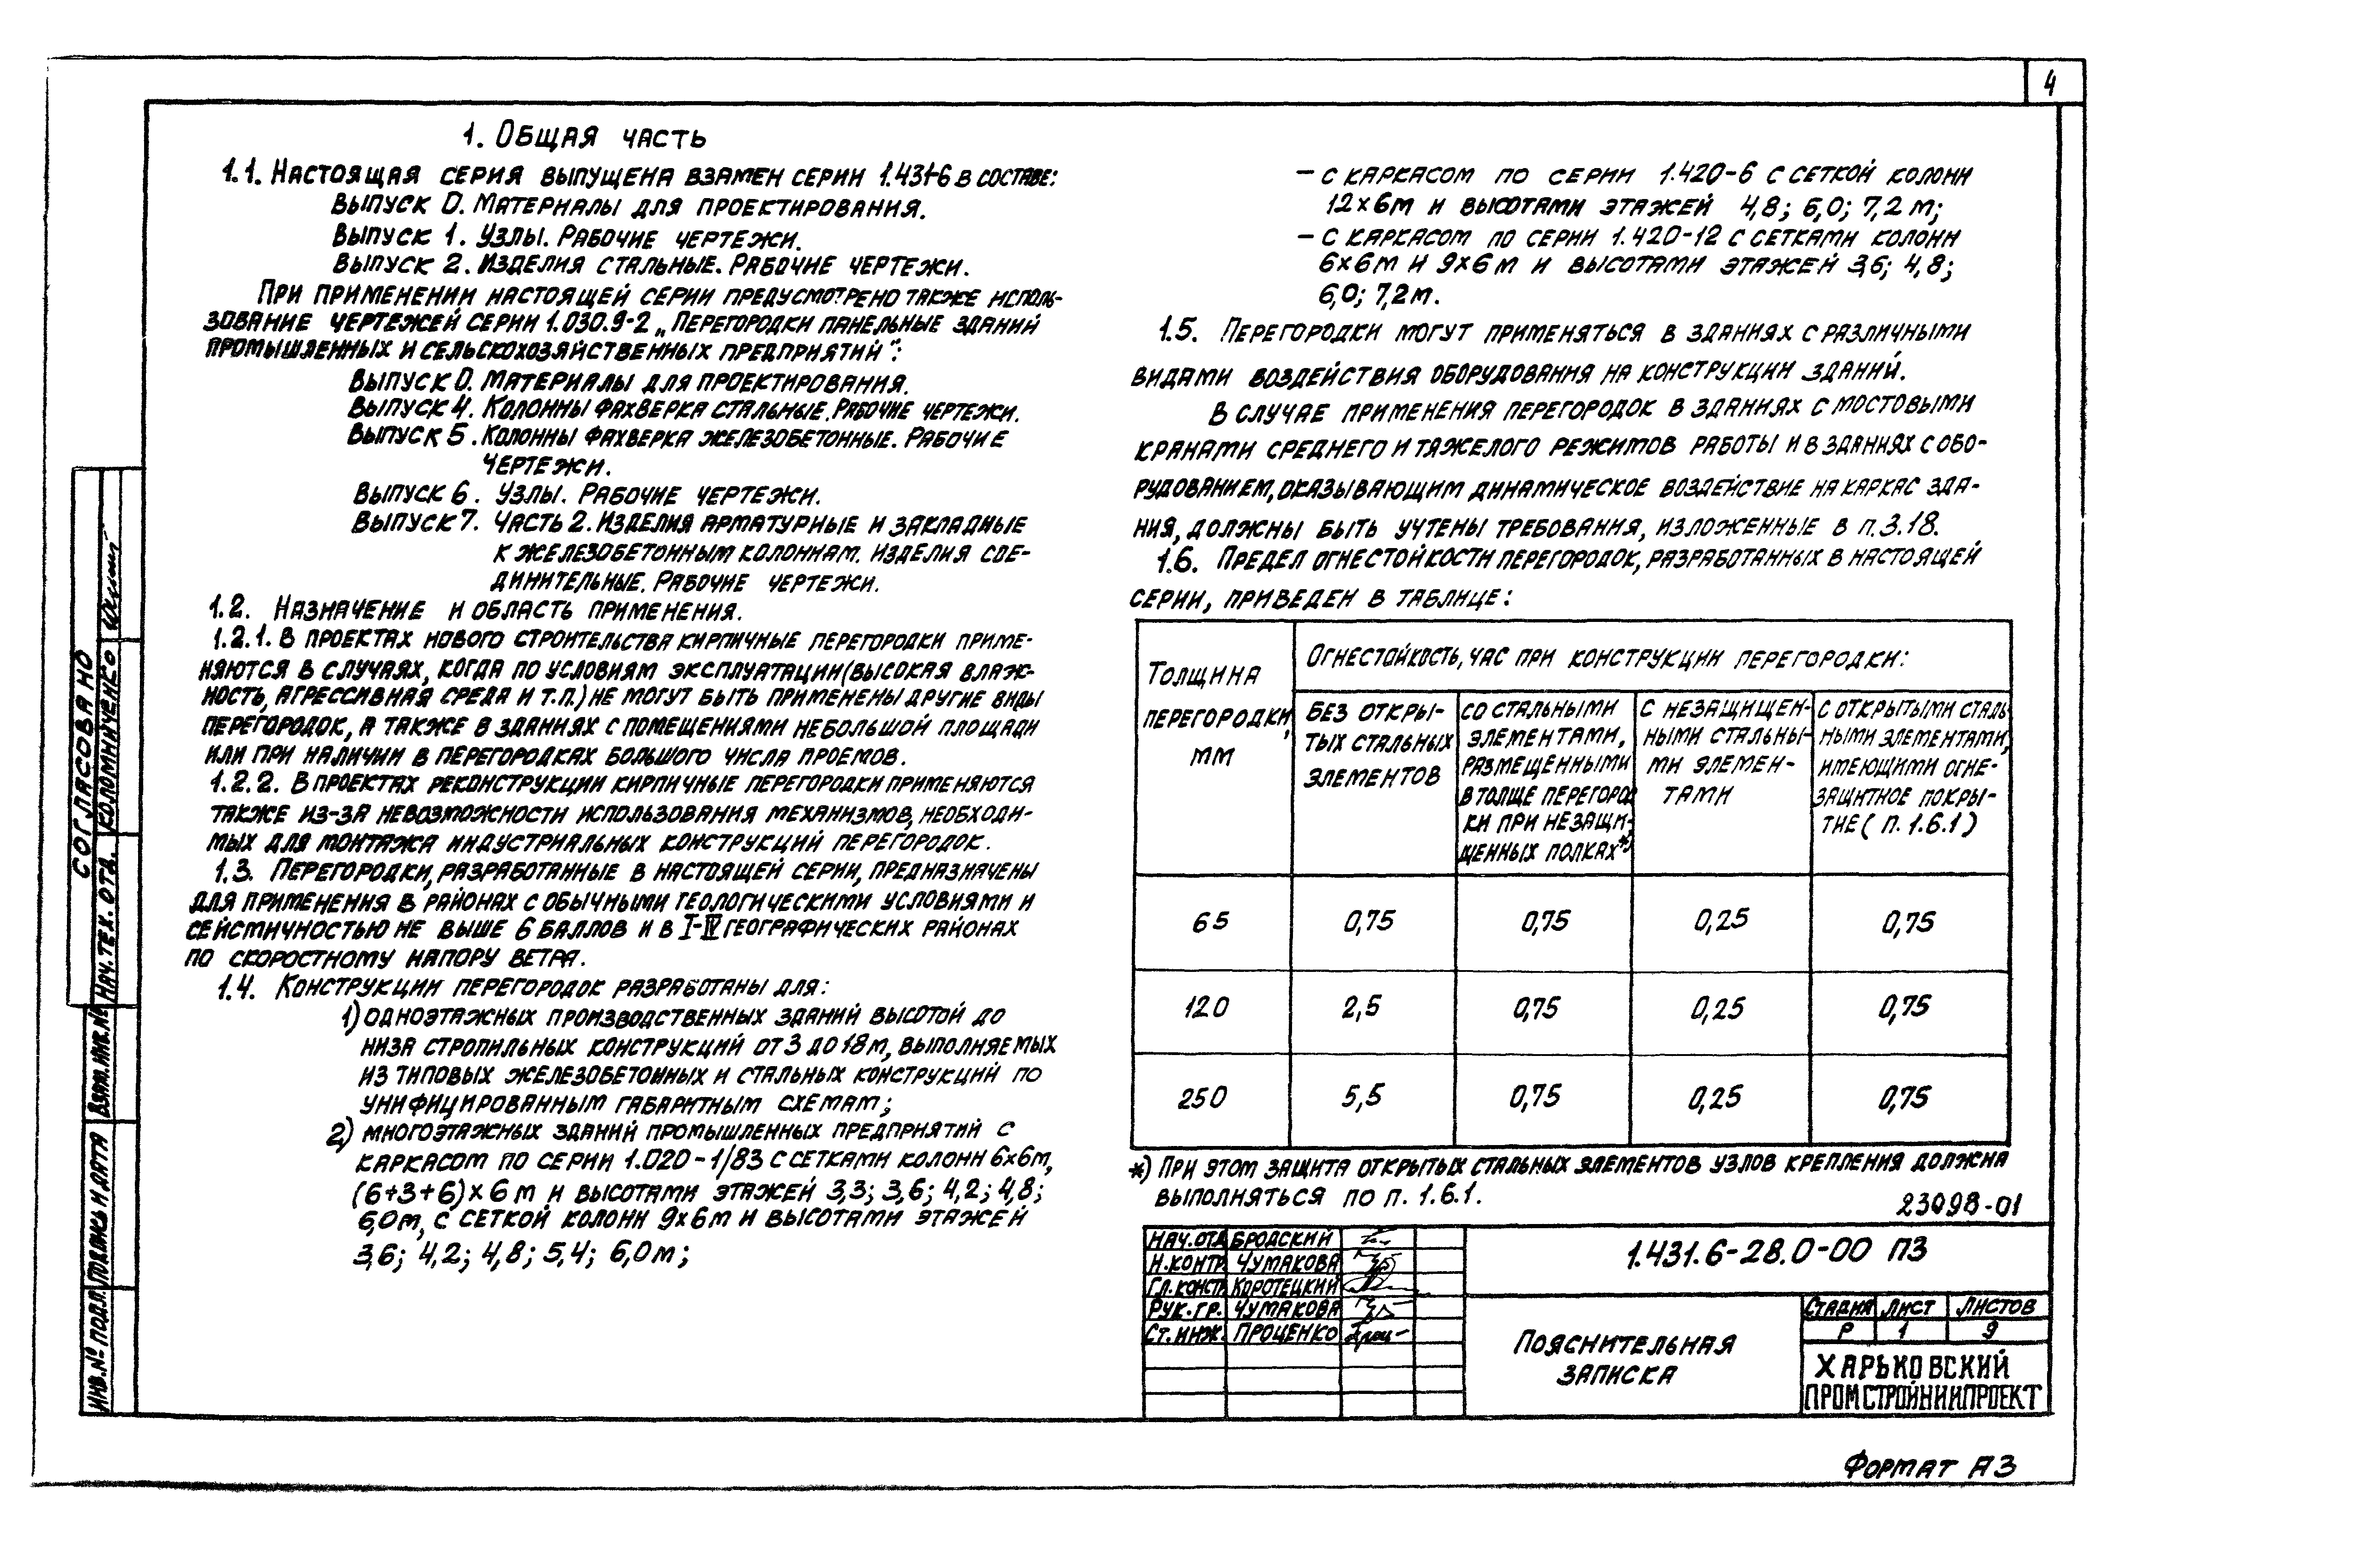 4
1. Общая часть
1.1. Настоящая серия выпущена взамен серии 1.431-6 в составе:
Выпуск 0. Материалы для проектирования.
Выпуск 1. Узлы. Рабочие чертежи.
Выпуск 2. Изделия стальные. Рабочие чертежи.
При применении настоящей серии предусмотрено также исполь-
зование чертежей серии 1.030.9-2 „Перегородки панельные зданий
промышленных и сельскохозяйственных предприятий":
Выпуск 0. Материалы для проектирования.
Выпуск 4. Колонны фахверка стальные. Рабочие чертежи.
Выпуск 5. Колонны фахверка железобетонные. Рабочие
чертежи.
Выпуск 6. Узлы. Рабочие чертежи.
Выпуск 7. Часть 2. Изделия арматурные и закладные
к железобетонным колоннам. Изделия сое-
динительные. Рабочие чертежи.
1.2. Назначение и область применения.
1.2.1. В проектах нового строительства кирпичные перегородки приме-
няются в случаях, когда по условиям эксплуатации (высокая влаж-
ность, агрессивная среда и т.п.) не могут быть применены другие виды
перегородок, а также в зданиях с помещениями небольшой площади
или при наличии в перегородках большого числа проемов.
1.2.2. В проектах реконструкции кирпичные перегородки применяются
также из-за невозможности использования механизмов, необходи-
мых для монтажа индустриальных конструкций перегородок.
1.3. Перегородки, разработанные в настоящей серии, предназначены
для применения в районах с обычными геологическими условиями и
сейсмичностью не выше 6 баллов и в I-IV географических районах
по скоростному напору ветра.
1.4. Конструкции перегородок разработаны для:
1) одноэтажных производственных зданий высотой до
низа стропильных конструкций от 3 до 18 м, выполняемых
из типовых железобетонных и стальных конструкций по
унифицированным габаритным схемам;
2) многоэтажных зданий промышленных предприятий с
каркасом по серии 1.020-1/83 с сетками колонн 6×6м,
(6+3+6)×6 м и высотами этажей 3,3; 3,6; 4,2; 4,8;
6,0м, с сеткой колонн 9×6м и высотами этажей
3,6; 4,2; 4,8; 5,4; 6,0м;
– с каркасом по серии 1.420-6 с сеткой колонн
12×6м и высотами этажей 4,8; 6,0; 7,2 м;
– с каркасом по серии 1.420-12 с сетками колонн
6×6м и 9×6м и высотами этажей 3,6; 4,8;
6,0; 7,2м.
1.5. Перегородки могут применяться в зданиях с различными
видами воздействия оборудования на конструкции зданий.
В случае применения перегородок в зданиях с мостовыми
кранами среднего и тяжелого режимов работы и в зданиях с обо-
рудованием, оказывающим динамическое воздействие на каркас зда-
ния, должны быть учтены требования, изложенные в п.3.18.
1.6. Предел огнестойкости перегородок, разработанных в настоящей
серии, приведен в таблице:
Толщина
перегородки,
мм
Огнестойкость, час при конструкции перегородки:
без откры-
тых стальных
элементов
со стальными
элементами,
размещенными
в толще перегород
ки при незащи-
щенных полках*)
с незащищен-
ными стальны-
ми элемен-
тами
с открытыми сталь
ными элементами,
имеющими огне-
защитное покры-
тие (п. 1.6.1)
65 0,75 0,75 0,25 0,75
120 2,5 0,75 0,25 0,75
250 5,5 0,75 0,25 0,75
*) При этом защита открытых стальных элементов узлов крепления должна
выполняться по п. 1.6.1.
23098-01
Нач.отд. Бродский
Н.контр. Чумакова
Гл.констр. Коротецкий
Рук.гр. Чумакова
Ст.инж. Проценко
1.431.6-28.0-00 ПЗ
Пояснительная
записка
Стадия Лист Листов
Р 1 9
Харьковский
Промстройниипроект
Формат А3
Согласовано
Нач. тех. отд. Коломниченко
Взам.инв.№
Подпись и дата
Инв.№ подл.